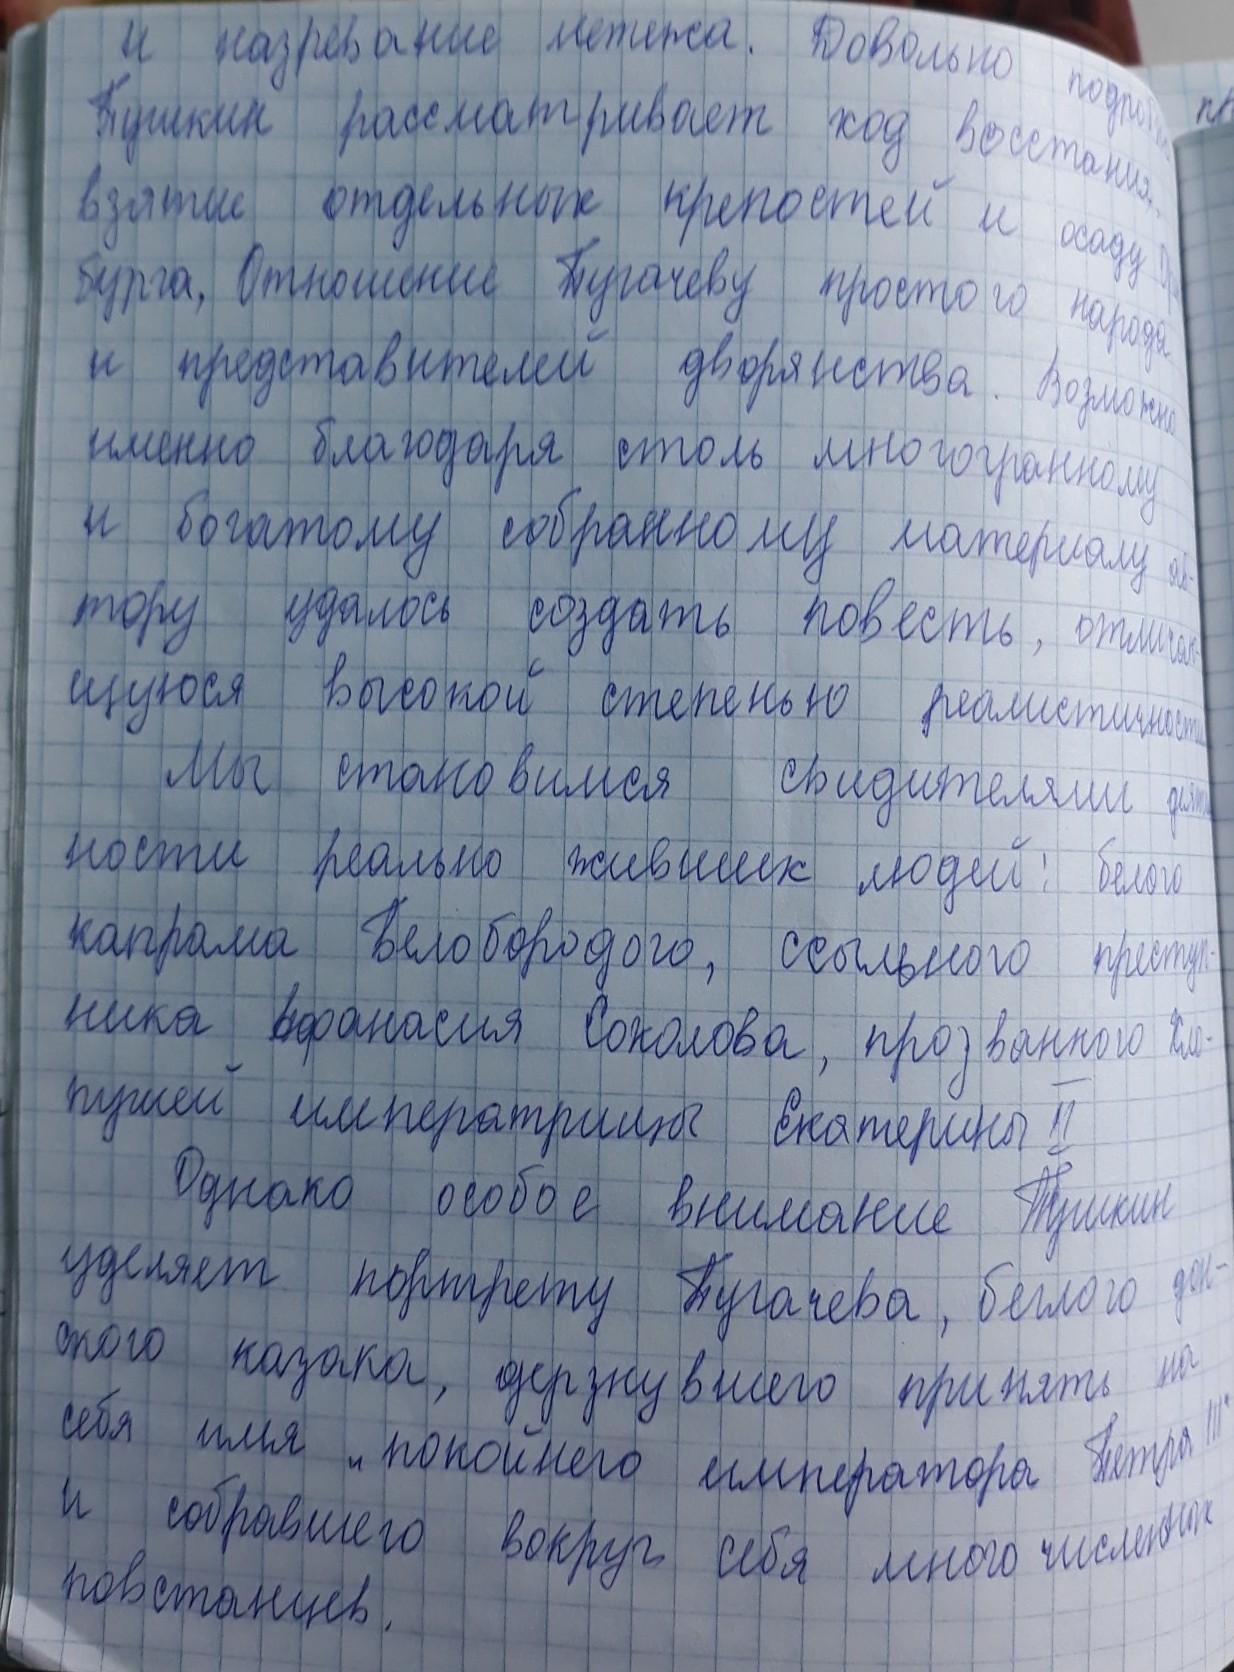 и назревание мятежа. Довольно подробно
Пушкин рассматривает ход восстания,
взятие отдельных крепостей и осаду
бурга, Отношение Пугачеву простого народа
и представителей дворянства. Возможно
именно благодаря столь многогранному
и богатому собранному материалу ав-
тору удалось создать повесть, отличаю-
щуюся высокой степенью реалистичности
Мы становимся свидителями
ности реально живших людей: белого
капрала Белобородого, ссыльного преступ-
ника Афанасия Соколова, прозванного Хло-
пушей императрицы Екатерины II
Однако особое внимание Пушкин
уделяет портрету Пугачева, беглого дон-
ского казака, дерзнувшего принять на
себя имя „покойнего императора Петра III"
и собравшего вокруг себя многочисленных
повстанцев.